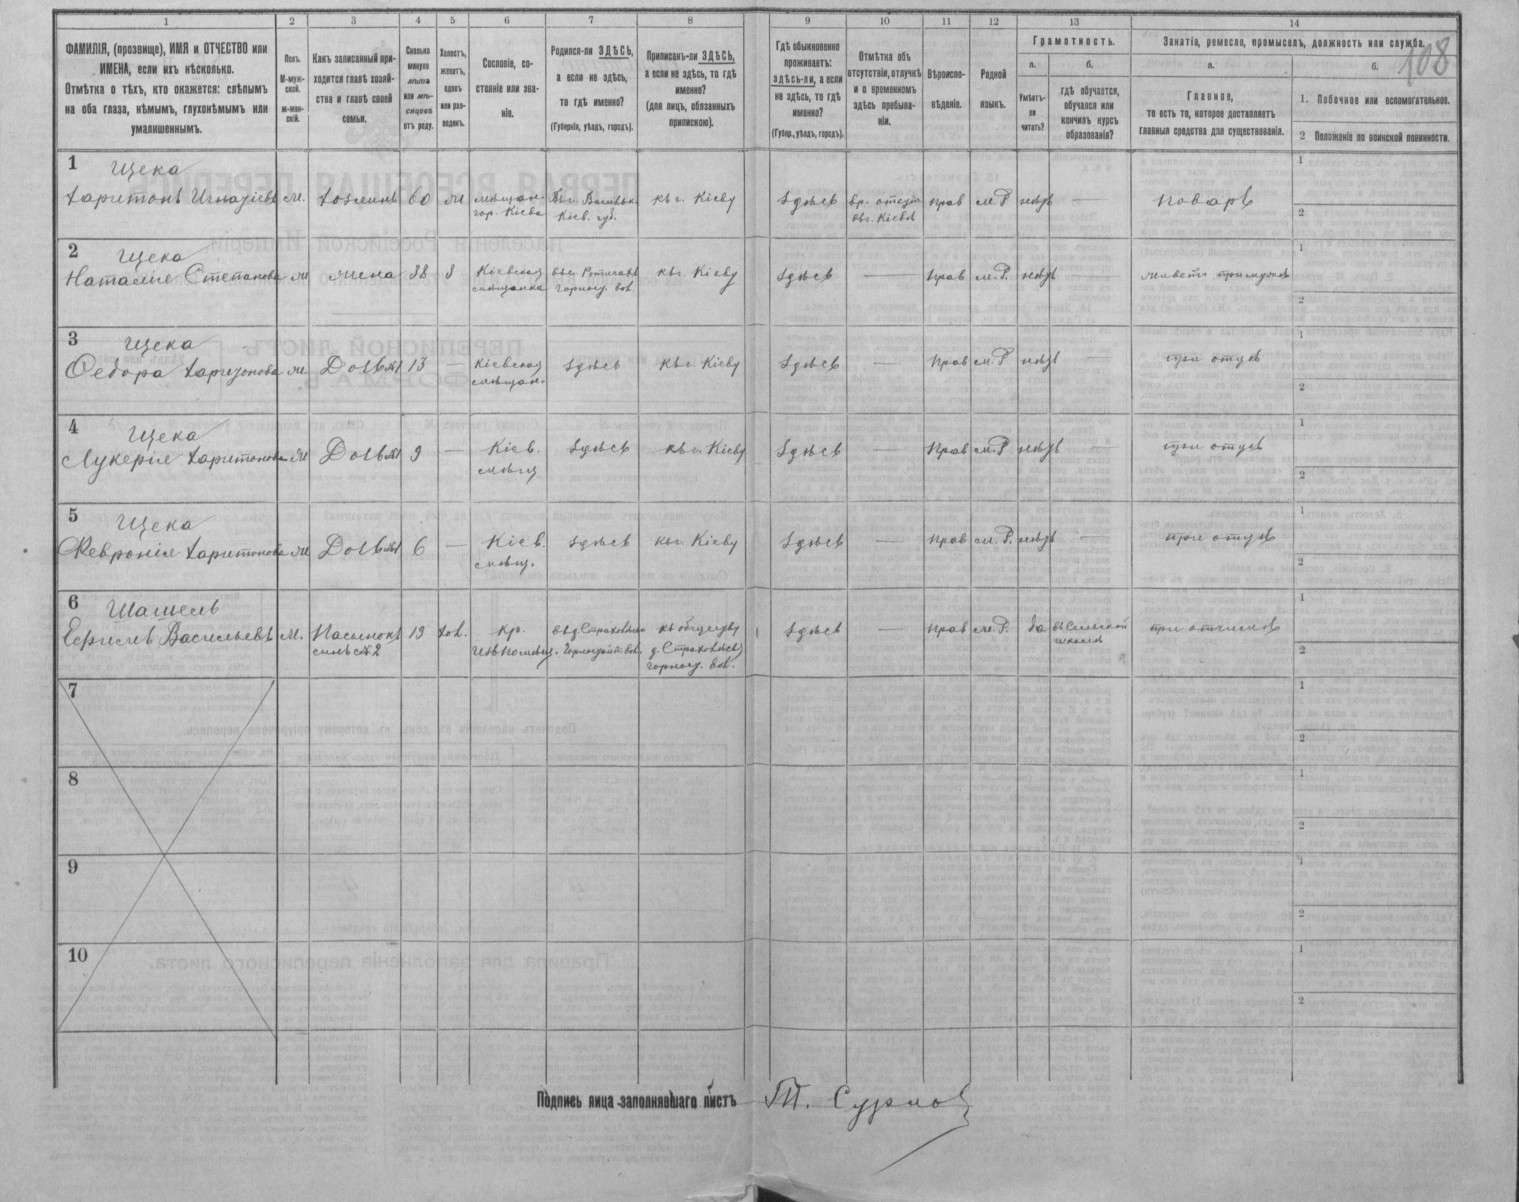 1 2 3 4 5 6 7 8 9 10 11 12 13 14
108
ФАМИЛІЯ, (прозвище), ИМЯ и ОТЧЕСТВО или
ИМЕНА, если ихъ нѣсколько.
Отмѣтка о тѣхъ, кто окажется: слѣпымъ
на оба глаза, нѣмымъ, глухонѣмымъ или
умалишеннымъ.
Полъ.
М-муж-
ской.
ж-жен-
скій.
Какъ записанный при-
ходится главѣ хозяй-
ства и главѣ своей
семьи.
Сколько
минуло
лѣтъ
или мѣ-
сяцевъ
отъ роду.
Холостъ,
женатъ,
вдовъ
или раз-
веденъ.
Сословіе, со-
стояніе или зва-
ніе.
Родился-ли ЗДѢСЬ,
а если не здѣсь,
то гдѣ именно?
(Губернія, уѣздъ, городъ).
Приписанъ-ли ЗДѢСЬ,
а если не здѣсь, то гдѣ
именно?
(для лицъ, обязанныхъ
припискою).
Гдѣ обыкновенно
проживаетъ:
здѣсь-ли, а если
не здѣсь, то гдѣ
именно?
(Губер., уѣздъ, городъ).
Отмѣтка объ
отсутствіи, отлучкѣ
и о временномъ
здѣсь пребыва-
ніи.
Вѣроиспо-
вѣданіе.
Родной
языкъ.
Грамотность.
а.
Умѣетъ-
ли
читать?
б.
гдѣ обучается,
обучался или
кончилъ курсъ
образованія?
Занятіе, ремесло, промыселъ, должность или служба.
а.
Главное,
то есть то, которое доставляетъ
главныя средства для существованія.
б.
1. Побочное или вспомогательное.
2 Положеніе по воинской повинности.
1 Щека
Харитонъ Игнатіевъ м. Хозяинъ 60 ж мѣщан. гор. Кіева въ г. Кіев. губ. къ г. Кіеву здѣсь вр. отсут. въ г. Кіевѣ прав м. Р нѣтъ — поваръ
1
2
2 Щека
Наталія Степанова ж жена 38 з Кіевская мѣщанка къ г. Кіеву здѣсь — прав м. Р. нѣтъ — при мужѣ
1
2
3 Щека
Федора Харитонова ж. Дочь №1 13 — Кіевская мѣщан. здѣсь къ г. Кіеву здѣсь — прав м. Р нѣтъ — при отцѣ
1
2
4 Щека
Лукерія Харитонова ж Дочь №1 9 — Кіев. мѣщ здѣсь къ г. Кіеву здѣсь — прав м. Р нѣтъ — при отцѣ
1
2
5 Щека
Февронія Харитонова ж Дочь №1 6 — Кіев. мѣщ. здѣсь къ г. Кіеву здѣсь — прав м. Р. нѣтъ — при отцѣ
1
2
6 Шашель
Васильевъ м. Пасынокъ сынъ №2 19 хол. кр. къ обществу здѣсь — прав м. Р. да въ Сельской школѣ при отчимѣ
1
2
7
1
2
8
1
2
9
1
2
10
1
2
Подпись лица заполнявшаго листъ